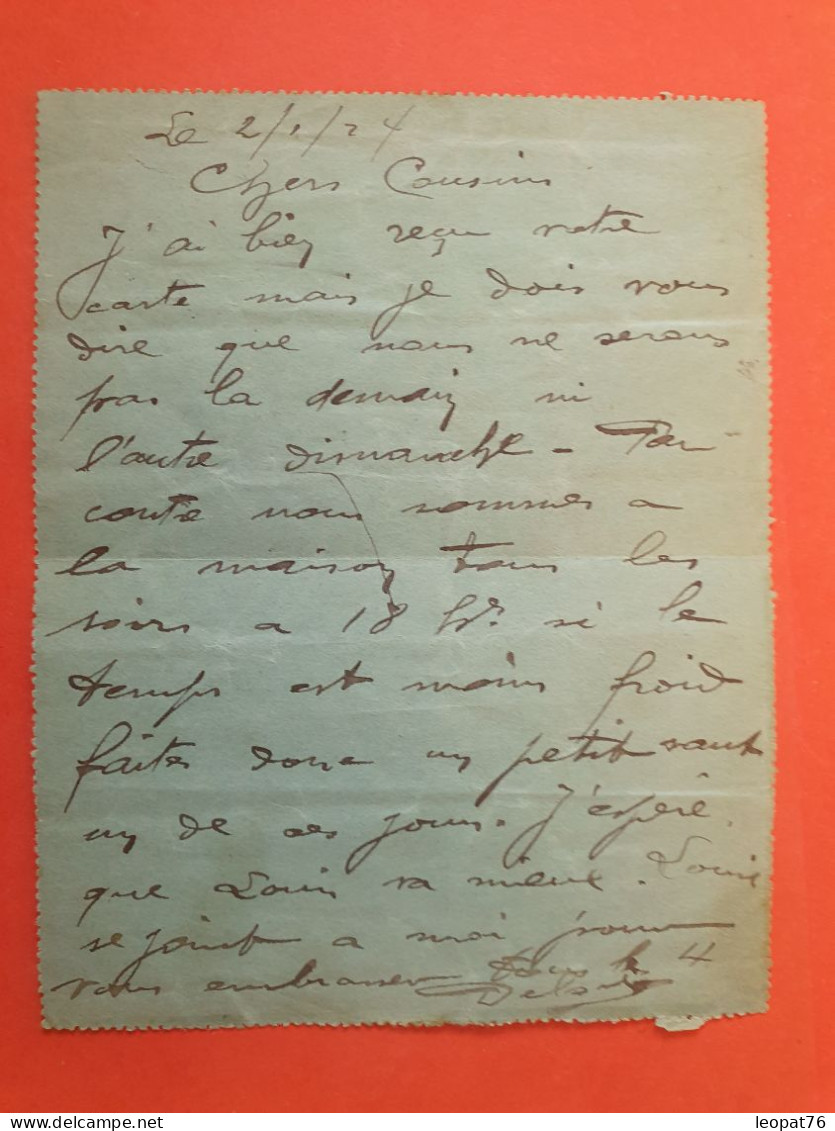 Le 2/1/24
Chers Cousins
J'ai bien reçu votre
carte mais je dois vous
dire que nous ne serons
pas la demain ni
l'autre dimanche - Par
contre nous sommes a
la maison tous les
soirs a 18 hrs si le
temps est moins froid
faites donc un petit saut
un de ces jours. J'espère
que Louis va mieux. Louis
se joint a moi pour
vous embrasser tous les 4
leopat76